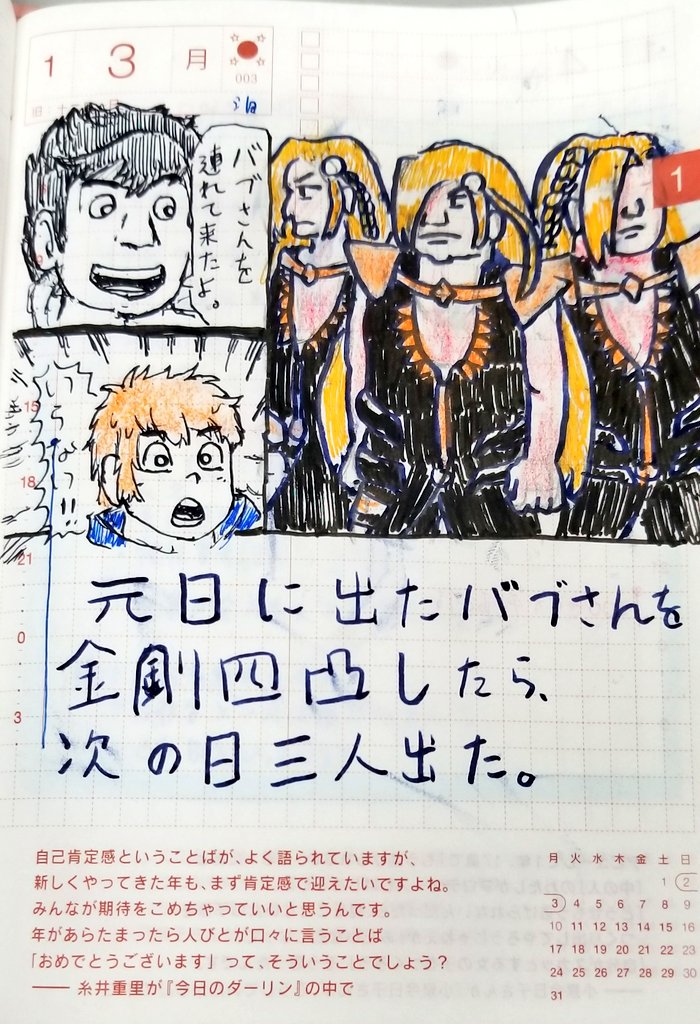 1
3
月
003
バブさんを
連れて来たよ。
1
いらなっ!!
15
18
21
0
3
元日に出たバブさんを
金剛四凸したら、
次の日三人出た。
自己肯定感ということばが、よく語られていますが、
新しくやってきた年も、まず肯定感で迎えたいですよね。
みんなが期待をこめちゃっていいと思うんです。
年があらたまったら人びとが口々に言うことば
「おめでとうございます」って、そういうことでしょう?
—— 糸井重里が『今日のダーリン』の中で
月 火 水 木 金 土 日
1 2
3 4 5 6 7 8 9
10 11 12 13 14 15 16
17 18 19 20 21 22 23
24 25 26 27 28 29 30
31